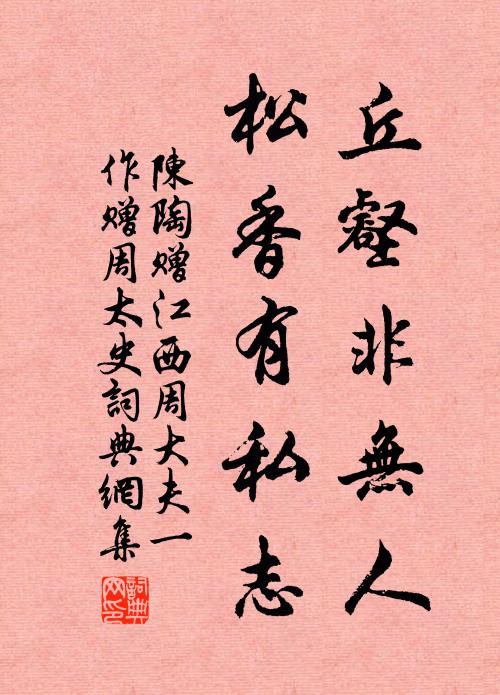 丘壑非無人
松香有私志
陳陶贈江西周大夫一
作贈周太史詞典網集
詞典
网印